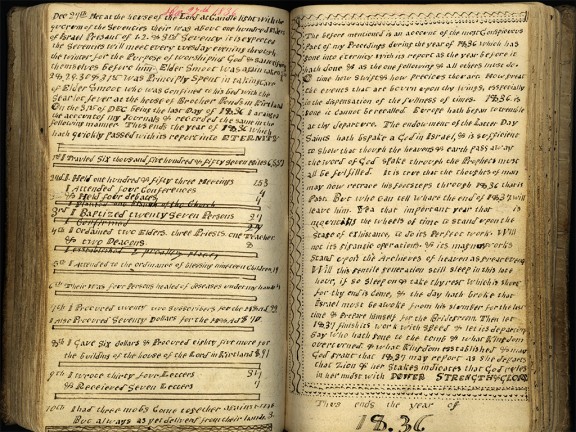 Dec 27th Met at the house of the Lord at Candle light with the
quorem of the Seventies their was above one hundred Elders
of Israel Present of 1.2. & 3rd Seventy it is expected
the Seventies will meet every tuesday evening through
the winter for the Purpose of worshiping God & sanctifying
themselves before him. Elder Smoot was again taken
29, 29, 30 & 31st was Principly Spent in taking care
of Elder Smoot who was confined to his bed with the
fever at the house of Brother Bonds in Kirtland
On the 31st of DEC being the last Day of 1836 I arranged
the account of my Journals & recorded the same in the
following manner. Thus ends the year of 1836 which
hath quickly passed with its report into ETERNITY
1st I Traveled Six thousand five hundred & fifty Seven Miles 6,557
2nd I Held one hundred & fifty three Meetings 153
I Attended four Conferences 4
& Held four debates 4
Planted one Branch of the Church
3rd I Baptized twenty Seven Persons 27
4th I Ordained two Elders, three Priests, one Teacher
& two Deacons 8
5th I Attended to the ordinance of blessing nineteen Children 19
6th Their was four Persons healed of diseases under my hands
7th I Procured twenty two Subscribers for the
I also Procured Seventy Dollars for the 70
8th I Gave Six dollars & Procured eighty five more for
the building of the house of the Lord in Kirtland $91
9th I wrote thirty four Letters
& Received Seven Letters 7
10th I had three mobs Come together against me
But always as yet deliverd from their hands. 3.
The before mentioned is an account of the most Conspicuous
Part of my Proceedings during the year of 1836 which has
gone into eternity with its report as the year before it
hath done & as the one following & all others must do
O time how swift & how precious thou art. How great
the events that are born upon thy wings, especially
in the dispensation of the fullness of times. 1836 is
gone it cannot be recalled. Europe hath began to tremble
at thy departure. The endowment of the Latter Day
Saints hath bespoke a God in Israel, & is sufficient
to show that though the heavens & earth pass away
the word of God spoke through the Prophets must
all be fulfilled. It is true that the thoughts of man
may now retrace his footsteps through 1836 that is
Past. But who can tell where the end of 1837 will
leave him. Yea that important year that is
the wheels of time to stand upon the
Stage of existance, to do its Perfect work. Will
not its gigantic operations & its magic works
Stand upon the Archieves of heaven as
Will this gentile generation still sleep in this late
hour, if so Sleep on & take thy rest which is short
for thy end is done, & the day hath broke that
Israel must be awoke from his slumber for the last
time & Prepare himself for the Bridegroom. Then let
1837 finish its work with speed & let its departing
Say who hath gone to the tomb & what Kingdom
overturned, & what Kingdom established & may
God grant that 1837 may report as She departs
that Zion & her Stakes indicates that God rules
in her midst with POWER STRENGTH & GLORY
Thus ends the year of
1836